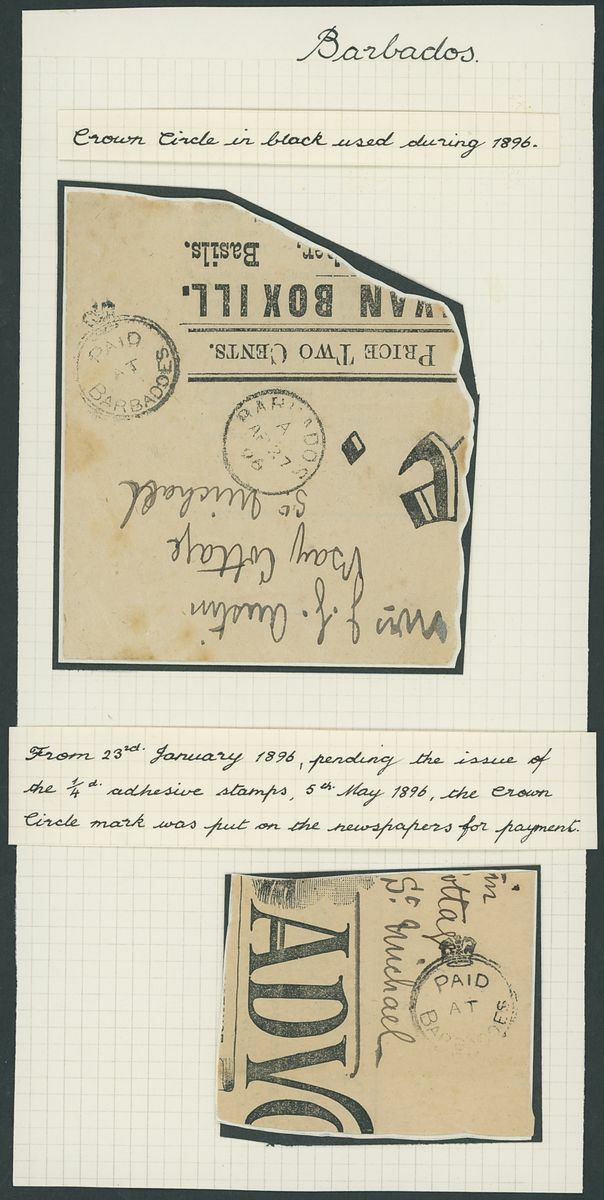 Barbados.
Crown Circle in black used during 1896.
Basils.
WAN BOXILL.
PRICE TWO CENTS.
PAID
AT
BARBADOES
BARBADOS
A
AP 27
96
Mrs J. J. Austin
Bay Cottage
St Michael
From 23rd. January 1896, pending the issue of
the ¼d. adhesive stamps, 5th. May 1896, the Crown
Circle mark was put on the newspapers for payment.
ADVO
in
ottage
St Michael
PAID
AT
BARBADOES